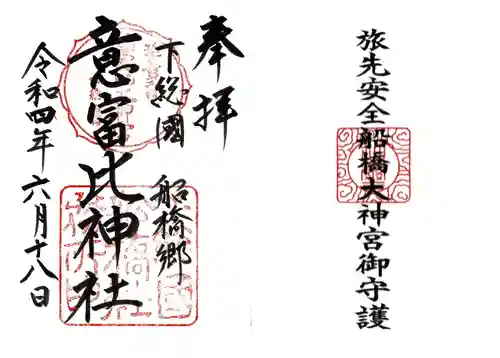 奉拝
下総國 船橋郷
意富比神社
令和四年六月十八日
旅先安全船橋大神宮御守護